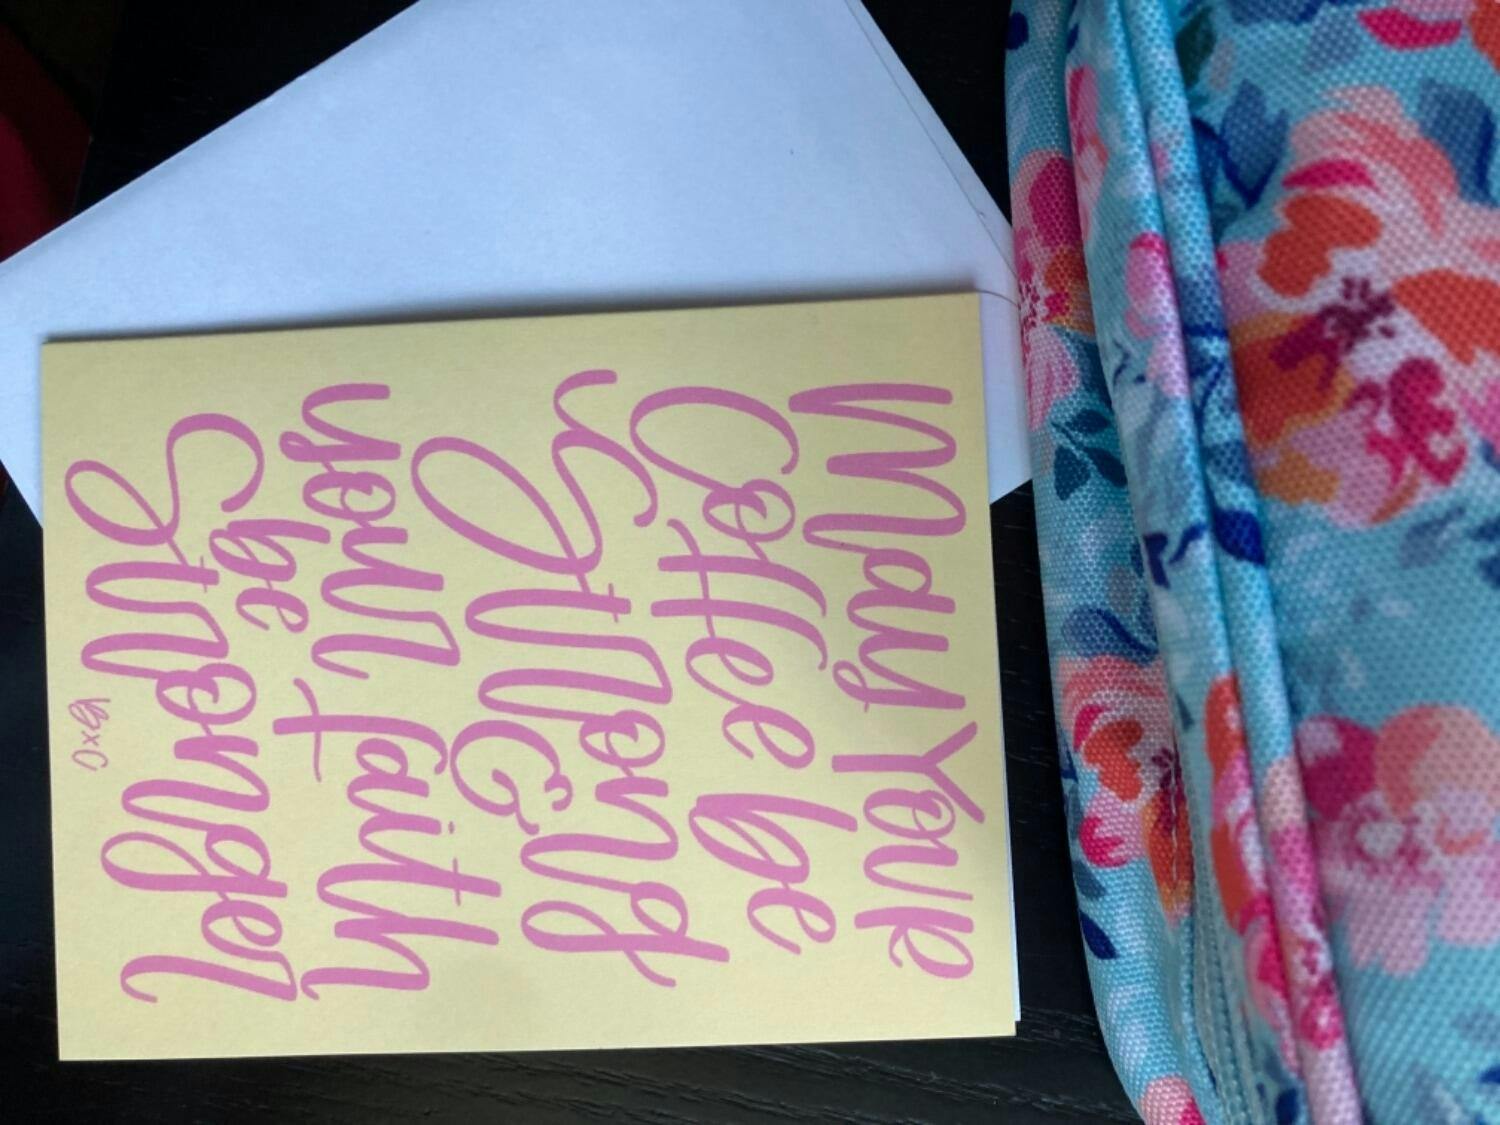 May Your
Coffee be
Strong
&
your faith
be
Stronger